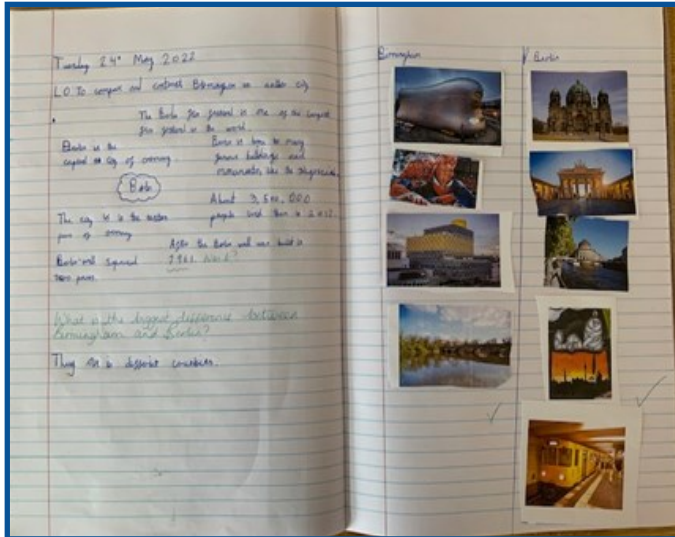 Tuesday 24th May 2022
LO To compare and contrast Birmingham to another city
The Berlin film festival is one of the largest
film festival in the world.
Berlin is the
capital city of Germany
Berlin is home to many
famous buildings and
monuments, like the
Berlin
About 3,500,000
people lived there in 2012.
The city is in the eastern
part of Germany
After the Berlin wall was built in
1961.
Berlin wall separated
two parts.
What is the biggest difference between
Birmingham and Berlin?
They are in different countries.
Birmingham
V Berlin